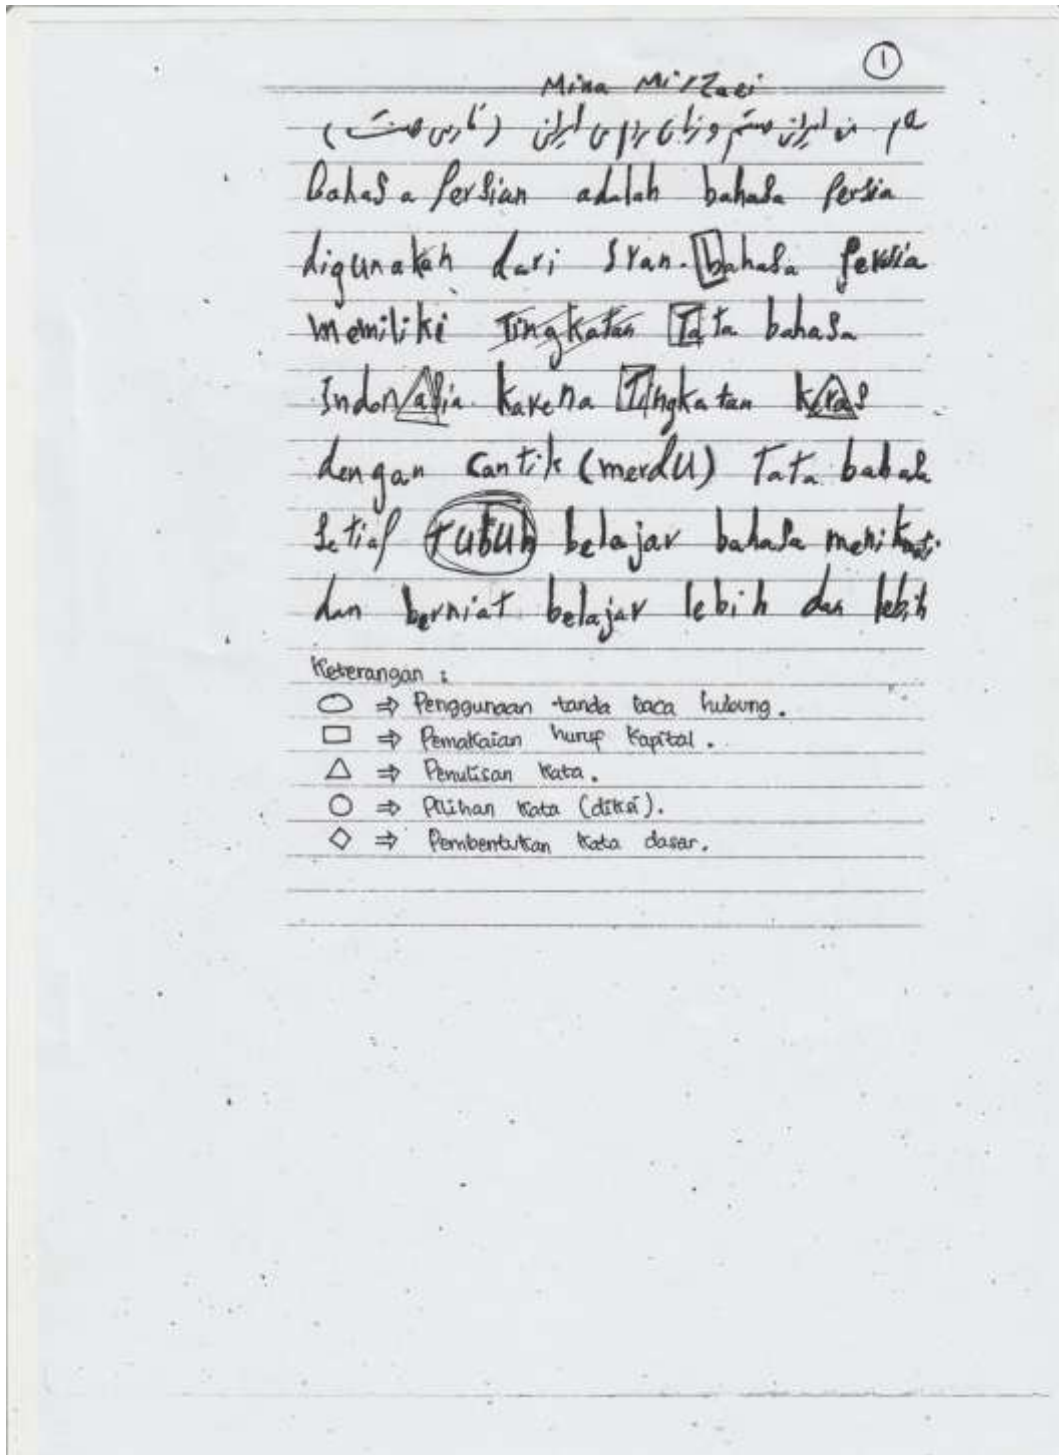 1
Mina Mirzaei
من ایرانی هستم و زبان ایران (فارسی هست)
bahasa Persian adalah bahasa Persia
digunakah dari Iran. bahasa Persia
memiliki Tingkatan Tata bahasa
Indonasia karena Tingkatan keras
dengan cantik (merdu) Tata bahasa
Setiap Tubuh belajar bahasa
dan berniat belajar lebih dan lebih
Keterangan :
⇒ Penggunaan tanda baca hubung.
⇒ Pemakaian hurup Kapital.
⇒ Penulisan Kata.
⇒ Pilihan Kata (diksi).
⇒ Pembentukan Kata dasar.